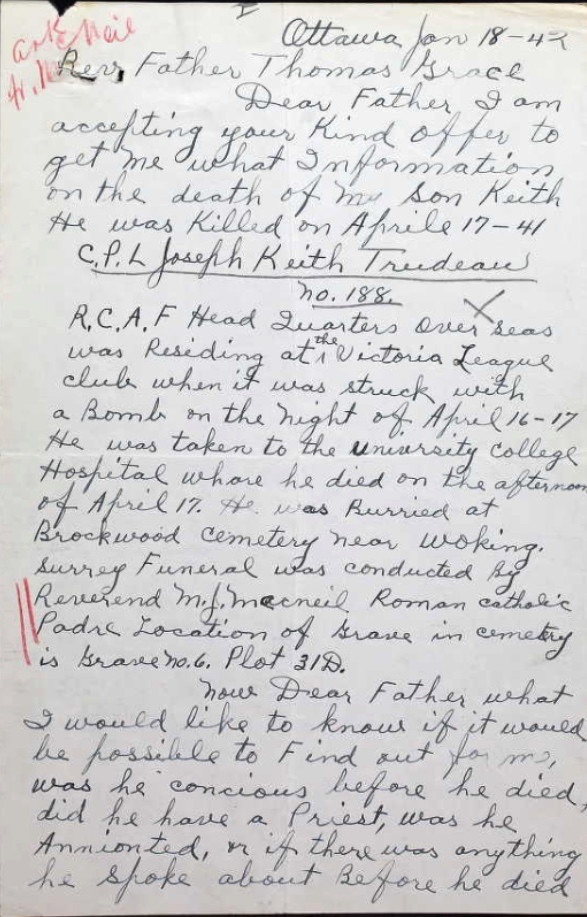 I
Ottawa Jan 18-42
ask McNeil
Rev, Father Thomas Grace
Dear Father, I am
accepting your Kind offer to
get me what Information
on the death of my Son Keith
He was Killed on Aprile 17-41
C.P.L Joseph Keith Trudeau
No. 188.
R.C.A.F Head Quarters over seas
was Residing at the Victoria League
club when it was struck with
a Bomb on the night of April 16-17
He was taken to the university college
Hospital whare he died on the afternoon
of April 17. He was Burried at
Brockwood cemetery near woking.
Surrey Funeral was conducted by
Reverend M.J. Macneil Roman catholic
Padre Location of Grave in cemetry
is Grave no. 6. Plot 31D.
Now Dear Father what
I would like to know if it would
be possible to Find out for me,
was he concious before he died,
did he have a Priest, was he
Annionted, or if there was anything
he Spoke about Before he died